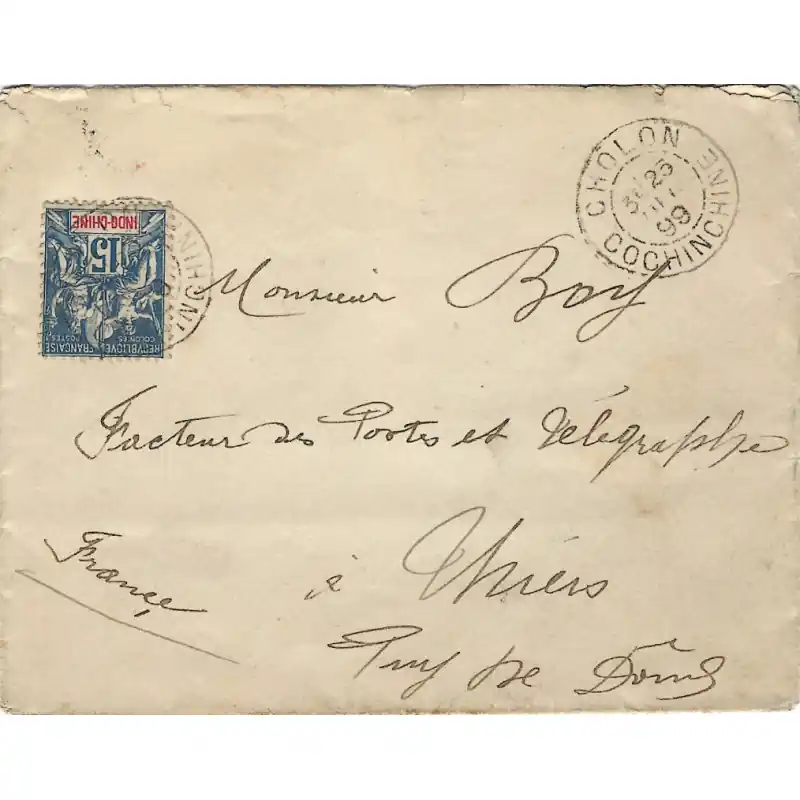 CHOLON
25
99
COCHINCHINE
INDO-CHINE
15
REPUBLIQUE FRANCAISE
COLONIES
POSTES
Monsieur Boy
Facteur des Postes et Télégraphe
à Thiers
France
Puy de Dôme